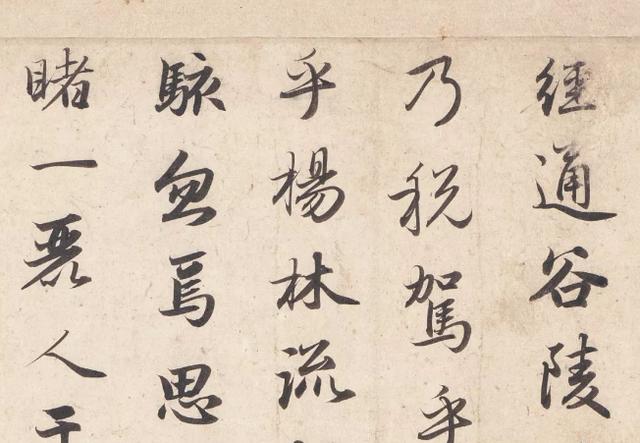 經通谷陵
乃稅駕乎
乎楊林流
駭忽焉思
睹一麗人于